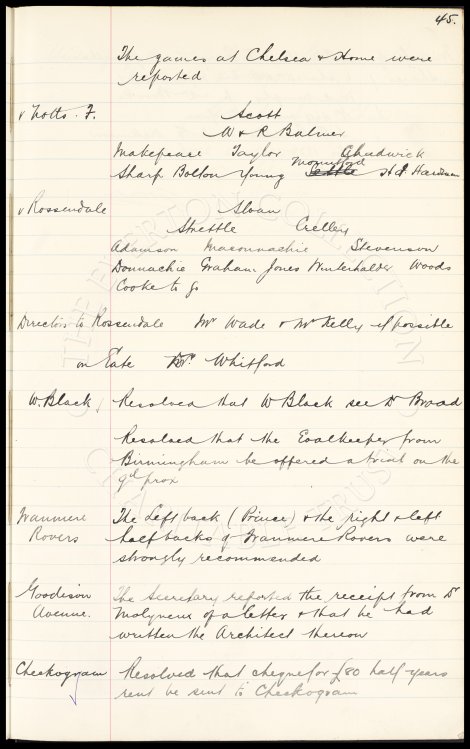 45.
The games at Chelsea & Home were
reported
v Notts. F.
Scott
W & R Balmer
Makepeace Taylor Chadwick
Sharp Bolton Young Mountford Settle H P Hardman
v Rossendale
Sloan
Strettle Crelley
Adamson Maconnachie Stevenson
Donnachie Graham Jones Winterhalder Woods
Cooke to go
Directors to Rossendale Mr Wade & Mr Kelly if possible
on Gate Dr. Whitford
W. Black Resolved that W Black see Dr Broad
Resolved that the Goalkeeper from
Birmingham be offered a trial on the
9th prox
Tranmere The Left back (Prince) & the right & left
Rovers half backs of Tranmere Rovers were
strongly recommended
Goodison The Secretary reported the receipt from Dr
Avenue. Molyneux of a letter & that he had
written the Architect thereon
Cheekogram Resolved that cheque for £80 half years
rent be sent to Cheekogram
THE EVERTON COLLECTION
CHARITABLE TRUST